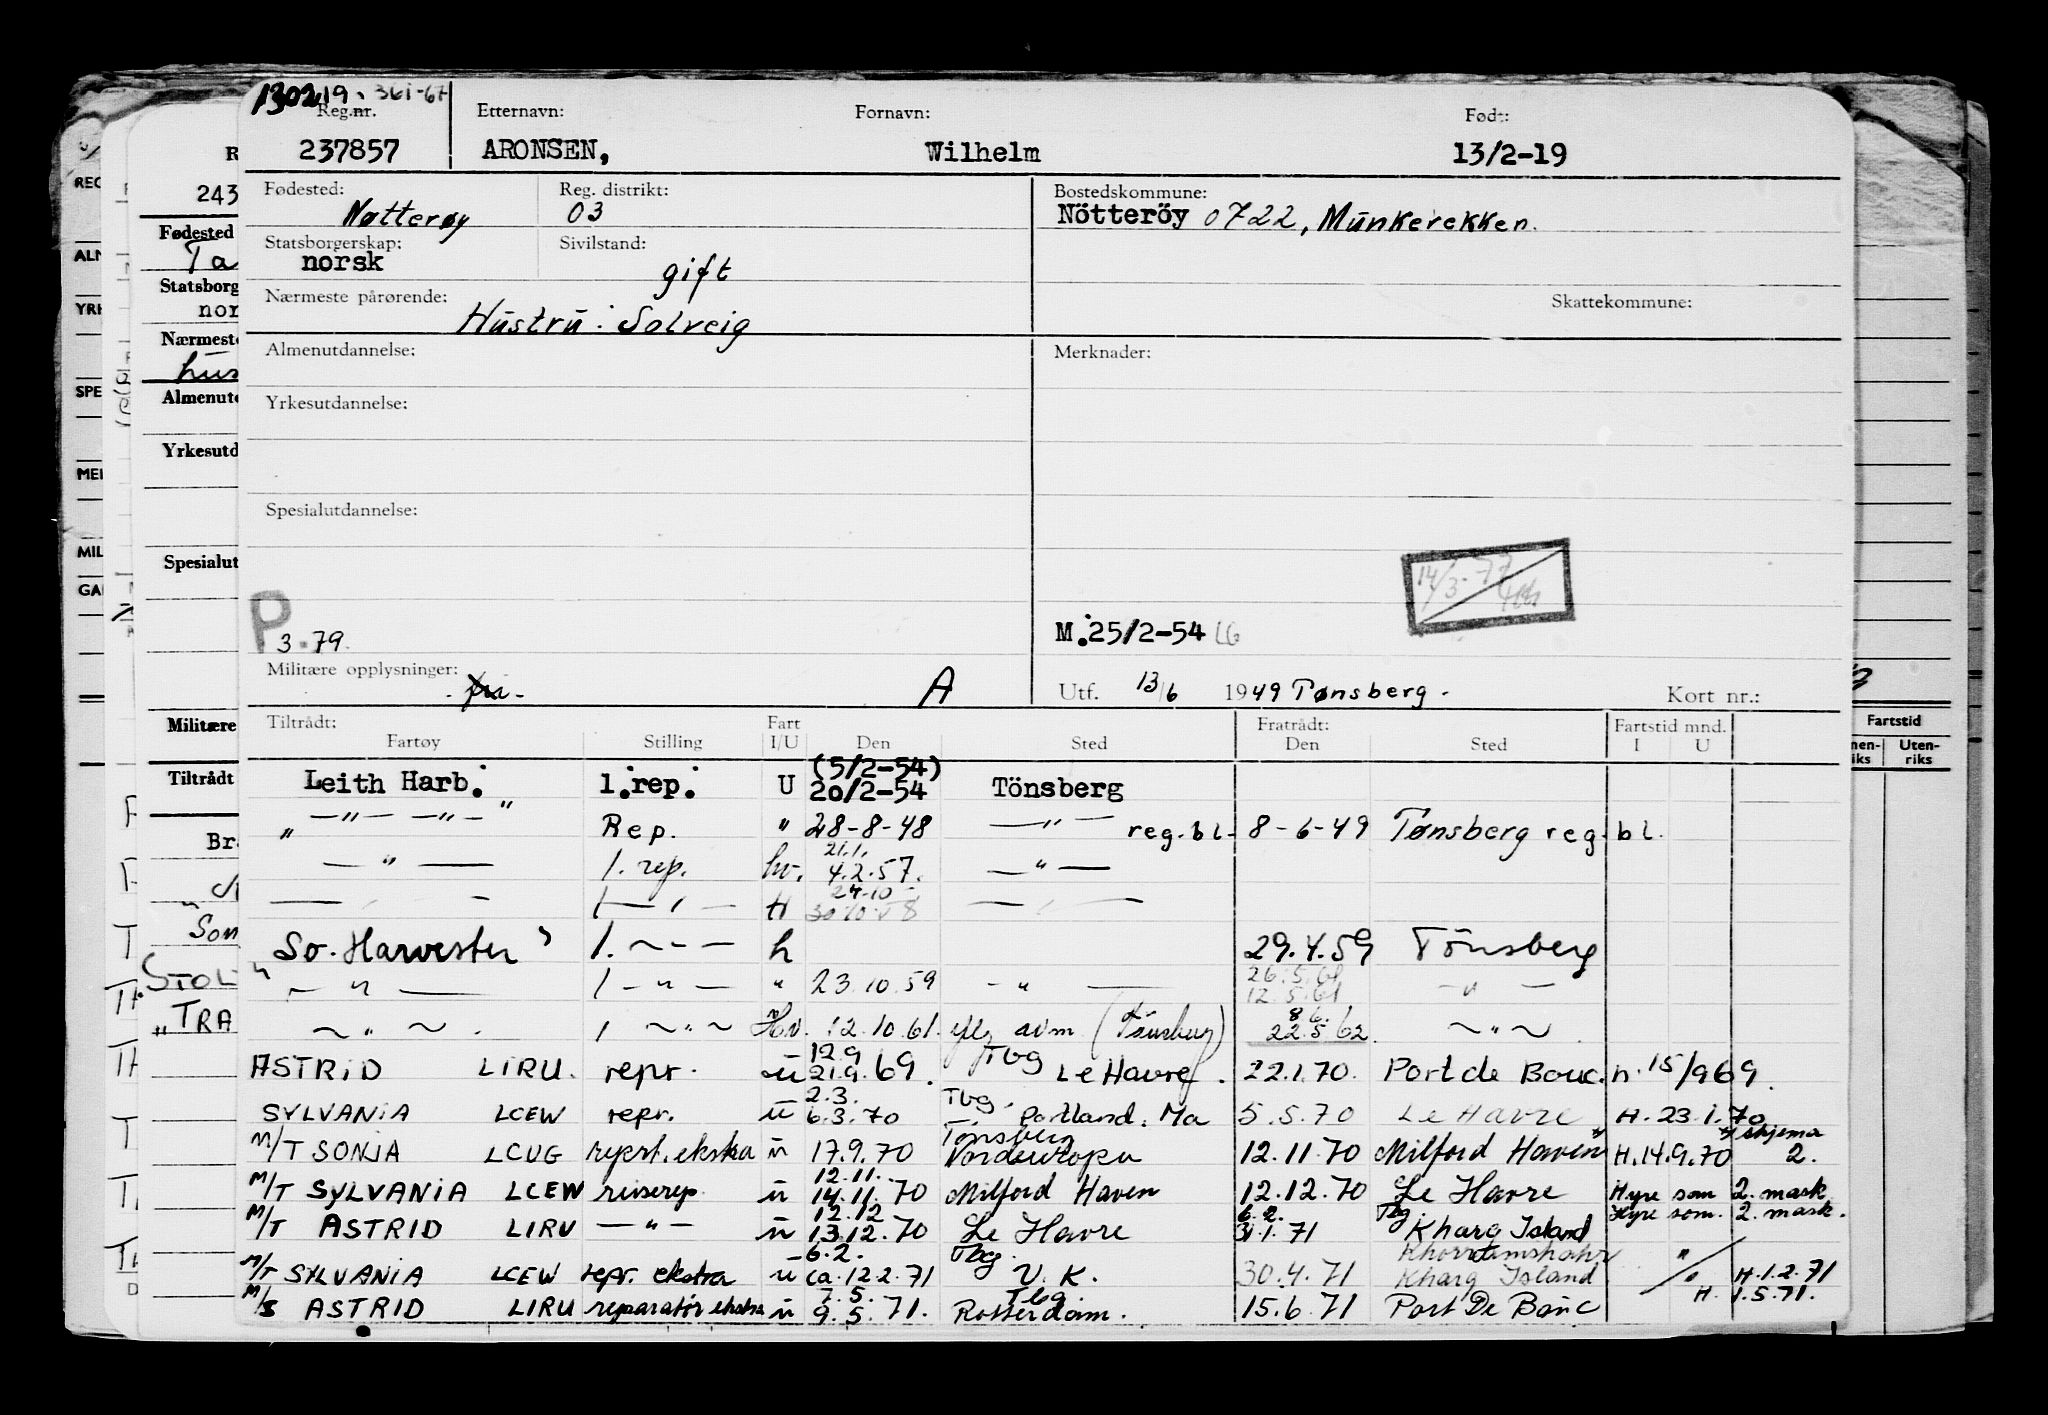 130219. 361-67
Reg.nr. Etternavn: Fornavn: Født:
237857 ARONSEN, Wilhelm 13/2-19
Fødested: Reg. distrikt: Bostedskommune:
Nøtterøy 03 Nötteröy 0722, Munkerekken.
Statsborgerskap: Sivilstand:
norsk gift
Nærmeste pårørende: Skattekommune:
Hustru: Solveig
Almenutdannelse: Merknader:
Yrkesutdannelse:
Spesialutdannelse:
14/3-77
P 3.79. M.25/2-54
Militære opplysninger: A Utf. 13/6 1949 Tønsberg. Kort nr.:
Tiltrådt: Fart Fratrådt: Fartstid mnd.
Fartøy Stilling I/U Den Sted Den Sted I U
(5/2-54)
Leith Harb. 1.rep. U 20/2-54 Tönsberg
" —"— —"— " Rep. " 28-8-48 —"— reg.bl. 8-6-49 Tønsberg reg.bl.
21.1.
—"— 1. rep. hv. 4.2.57. —"—
24-10
H
So. Harvester" 1. ~-— h 29.4.59 Tönsberg
26.5.61
" —"— 1 -"- " 23.10.59 -"— 12.5.61 -"-
8 6.
~"~ 1 ~"~ Hv. 12.10.61. (Tönsberg) 22.5.62. ~"~
12.9 Tbg
ASTRID LIRU. repr. u 21.9.69. Le Havre. 22.1.70. Port de Bouc. H. 15/969.
2.3. Tbg.
SYLVANIA LCEW repr. u 6.3.70 Portland. Ma 5.5.70 Le Havre H. 23.1.70
Tönsberg skjema
M/T SONJA LCUG reprt. ekstra u 17.9.70 Nordeuropa 12.11.70 Milford Haven H.14.9.70 2.
12.11.
M/T SYLVANIA LCEW reiserep. u 14.11.70 Milford Haven 12.12.70 Le Havre Hyre som 2. mask.
12.12 6.2. Tbg. Hyre som. 2. mask.
M/T ASTRID LIRU —"— u 13.12.70 Le Havre 31.1.71 Kharg Island
6.2. Tbg. Khorramshahr "
M/T SYLVANIA LCEW repr. ekstra u ca. 12.2.71 U.K. 30.4.71 Kharg Island " H.1.2.71
7.5. Tbg. H. 1.5.71.
M/S ASTRID LIRU reparatør ekstra u 9.5.71. Rotterdam. 15.6.71 Port De Bouc
243
Fødested
Ta
Statsborg
nor
Nærmeste
hus
Almenutd
Yrkesutd
Spesialut
Militære
Tiltrådt
Br
Som
STOL
"TRA
REG
ALM
YRK
SPE
MER
MIL
GA
Fartstid
nen-
iks
Uten-
riks